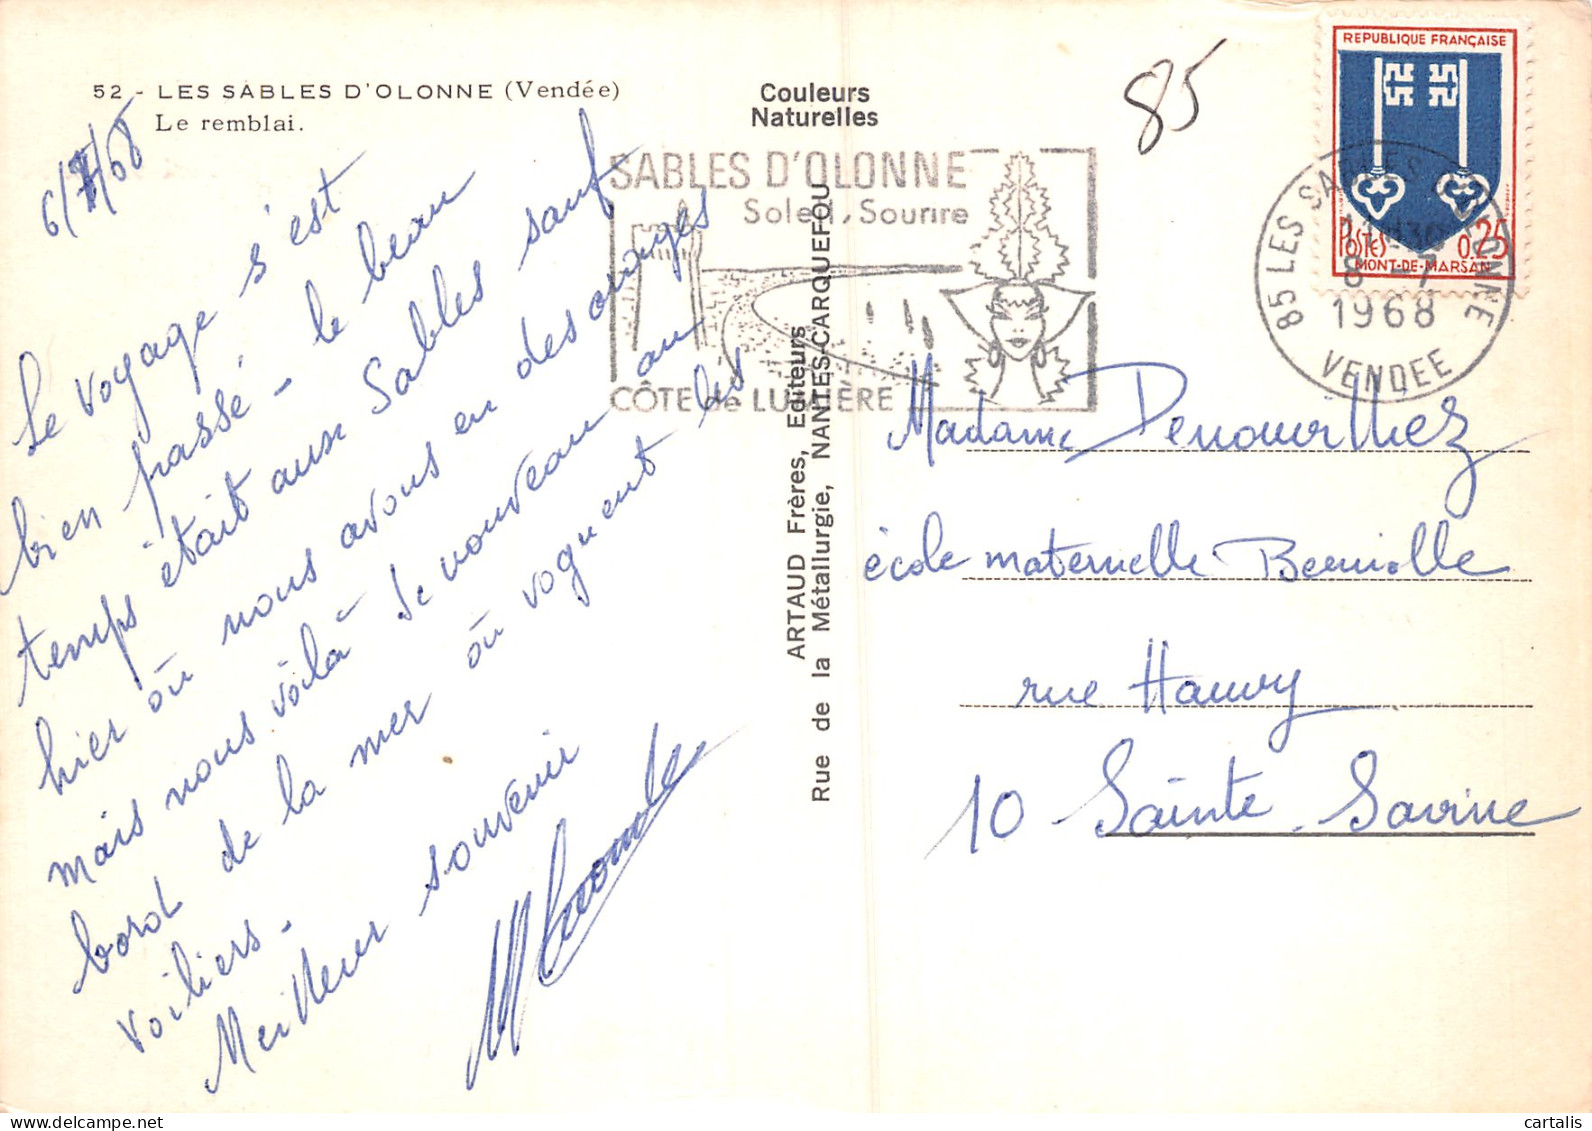 52 - LES SABLES D'OLONNE (Vendée)
Le remblai.
6/7/68
Le voyage s'est
bien passé - le beau
temps était aux Sables sauf
hier où nous avons eu des orages
mais nous voilà de nouveau au
bord de la mer où voguent les
voiliers.
Meilleur souvenir
Couleurs
Naturelles
SABLES D'OLONNE
Soleil, Sourire
CÔTE de LUMIÈRE
ARTAUD Frères, Editeurs
Rue de la Métallurgie, NANTES-CARQUEFOU
85
REPUBLIQUE FRANÇAISE
POSTES 0.25
MONT-DE-MARSAN
85 LES SABLES D'OLONNE
8 -7
1968
VENDEE
Madame
école maternelle
rue
10 Sainte-Savine
cartalis
delcampe.net